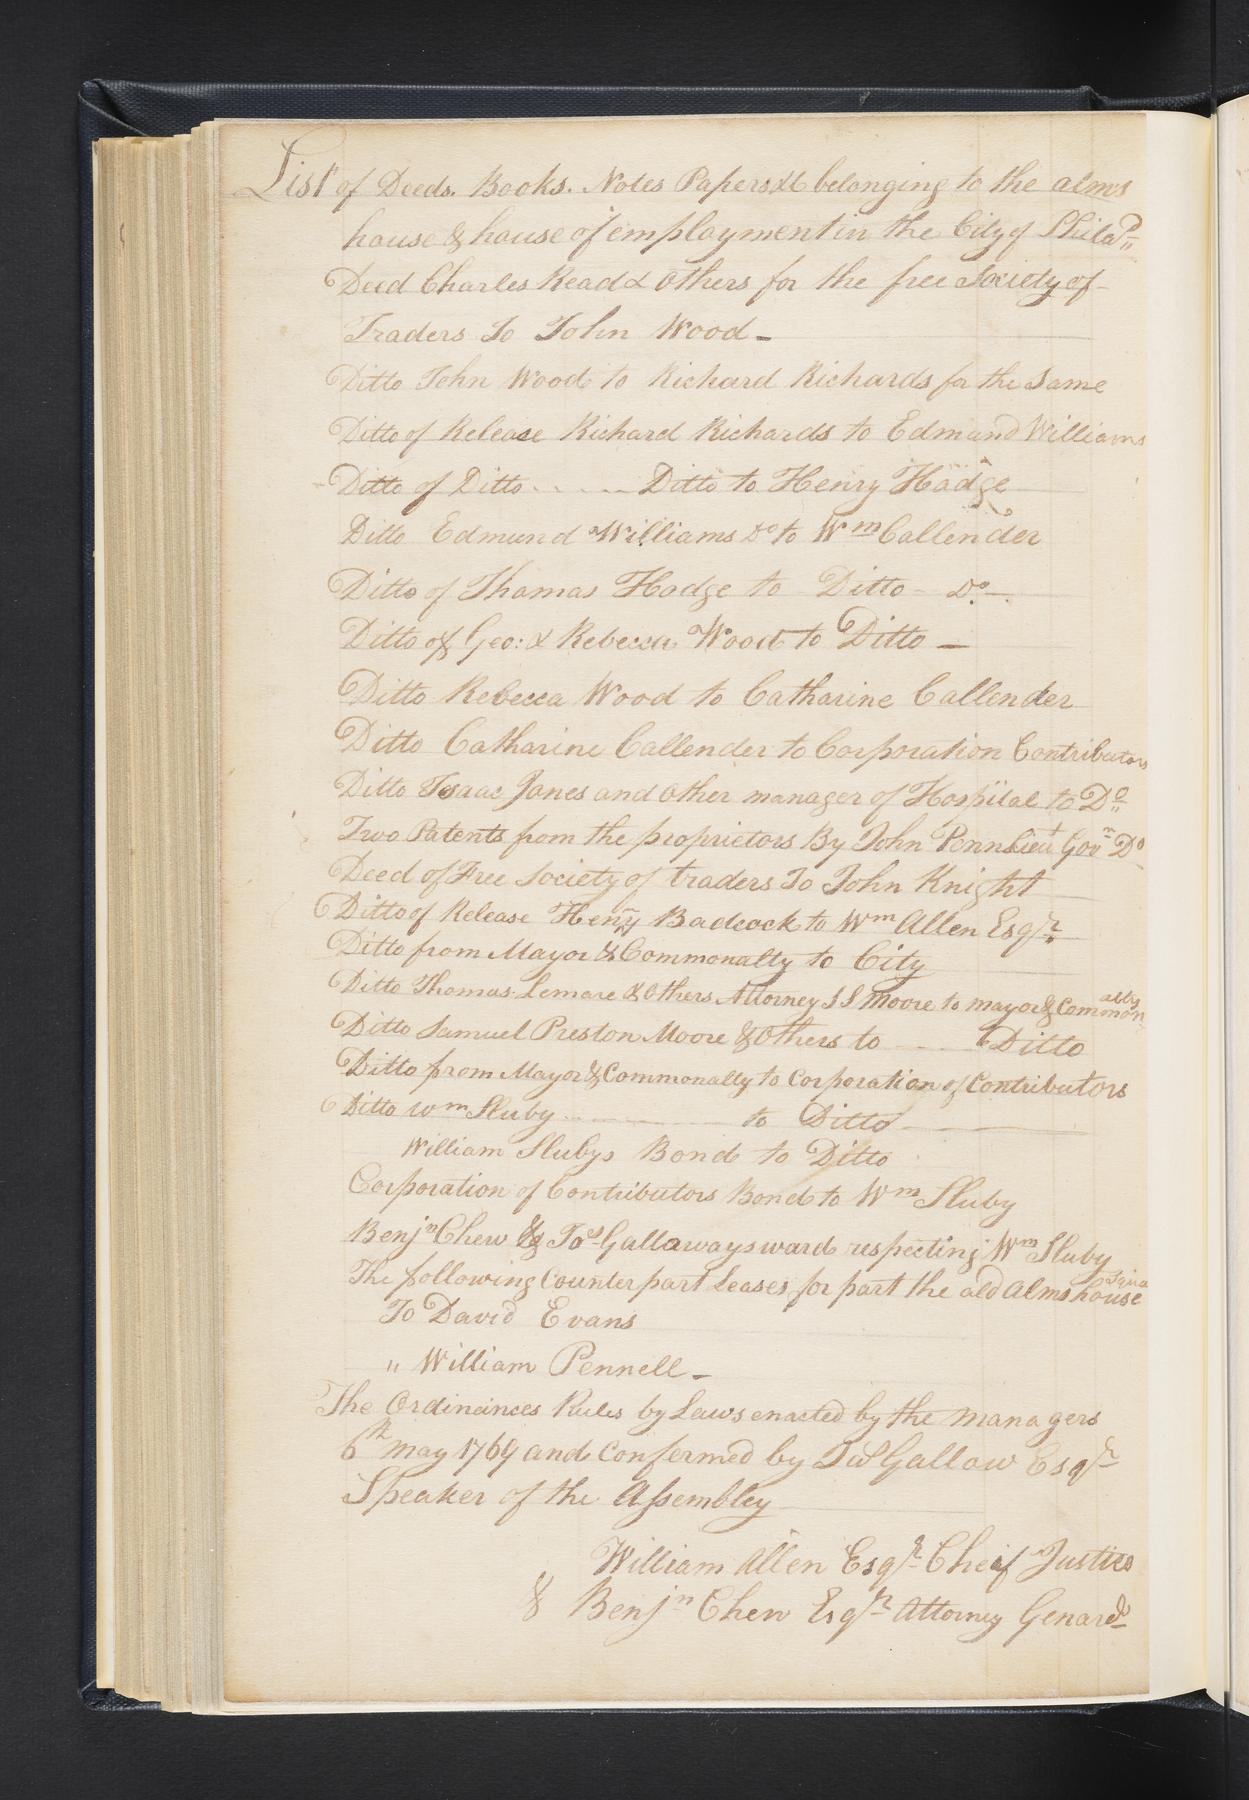 List of Deeds. Books. Notes Papers &c belonging to the alms
house & house of employment in the City of Philad
Deed Charles Read & Others for the free Society of
Traders To John Wood -
Ditto John Wood to Richard Richards for the Same
Ditto of Release Richard Richards to Edmund Williams
Ditto of Ditto ..... Ditto to Henry Hodge
Ditto Edmund Williams Do to Wm Callender
Ditto of Thomas Hodge to Ditto - Do -
Ditto of Geo: & Rebecca Wood to Ditto -
Ditto Rebecca Wood to Catharine Callender
Ditto Catharine Callender to Corporation Contributors
Ditto Isaac Jones and Other manager of Hospital to Do
Two Patents from the proprietors By John Penn Lieut Govr Do
Deed of Free Society of traders To John Knight
Ditto of Release Henry Badcock to Wm Allen Esqr
Ditto from Mayor & Commonalty to City
Ditto Thomas Lemare & Others Attorney I S Moore to mayor & Commonalty
Ditto Samuel Preston Moore & Others to ..... Ditto
Ditto from Mayor & Commonalty to Corporation of Contributors
Ditto Wm Sluby ..... to Ditto
William Slubys Bond to Ditto
Corporation of Contributors Bond to Wm Sluby
Benjn Chew & Jos Galloways ward respecting Wm Sluby
The following Counter part Leases for part the old Alms house
To David Evans
" William Pennell -
The Ordinances Rules by Laws enacted by the managers
6th may 1769 and confermed by Jos Gallow Esqr
Speaker of the Assembley
William Allen Esqr Cheif Justice
& Benjn Chew Esqr Attorney Genarel